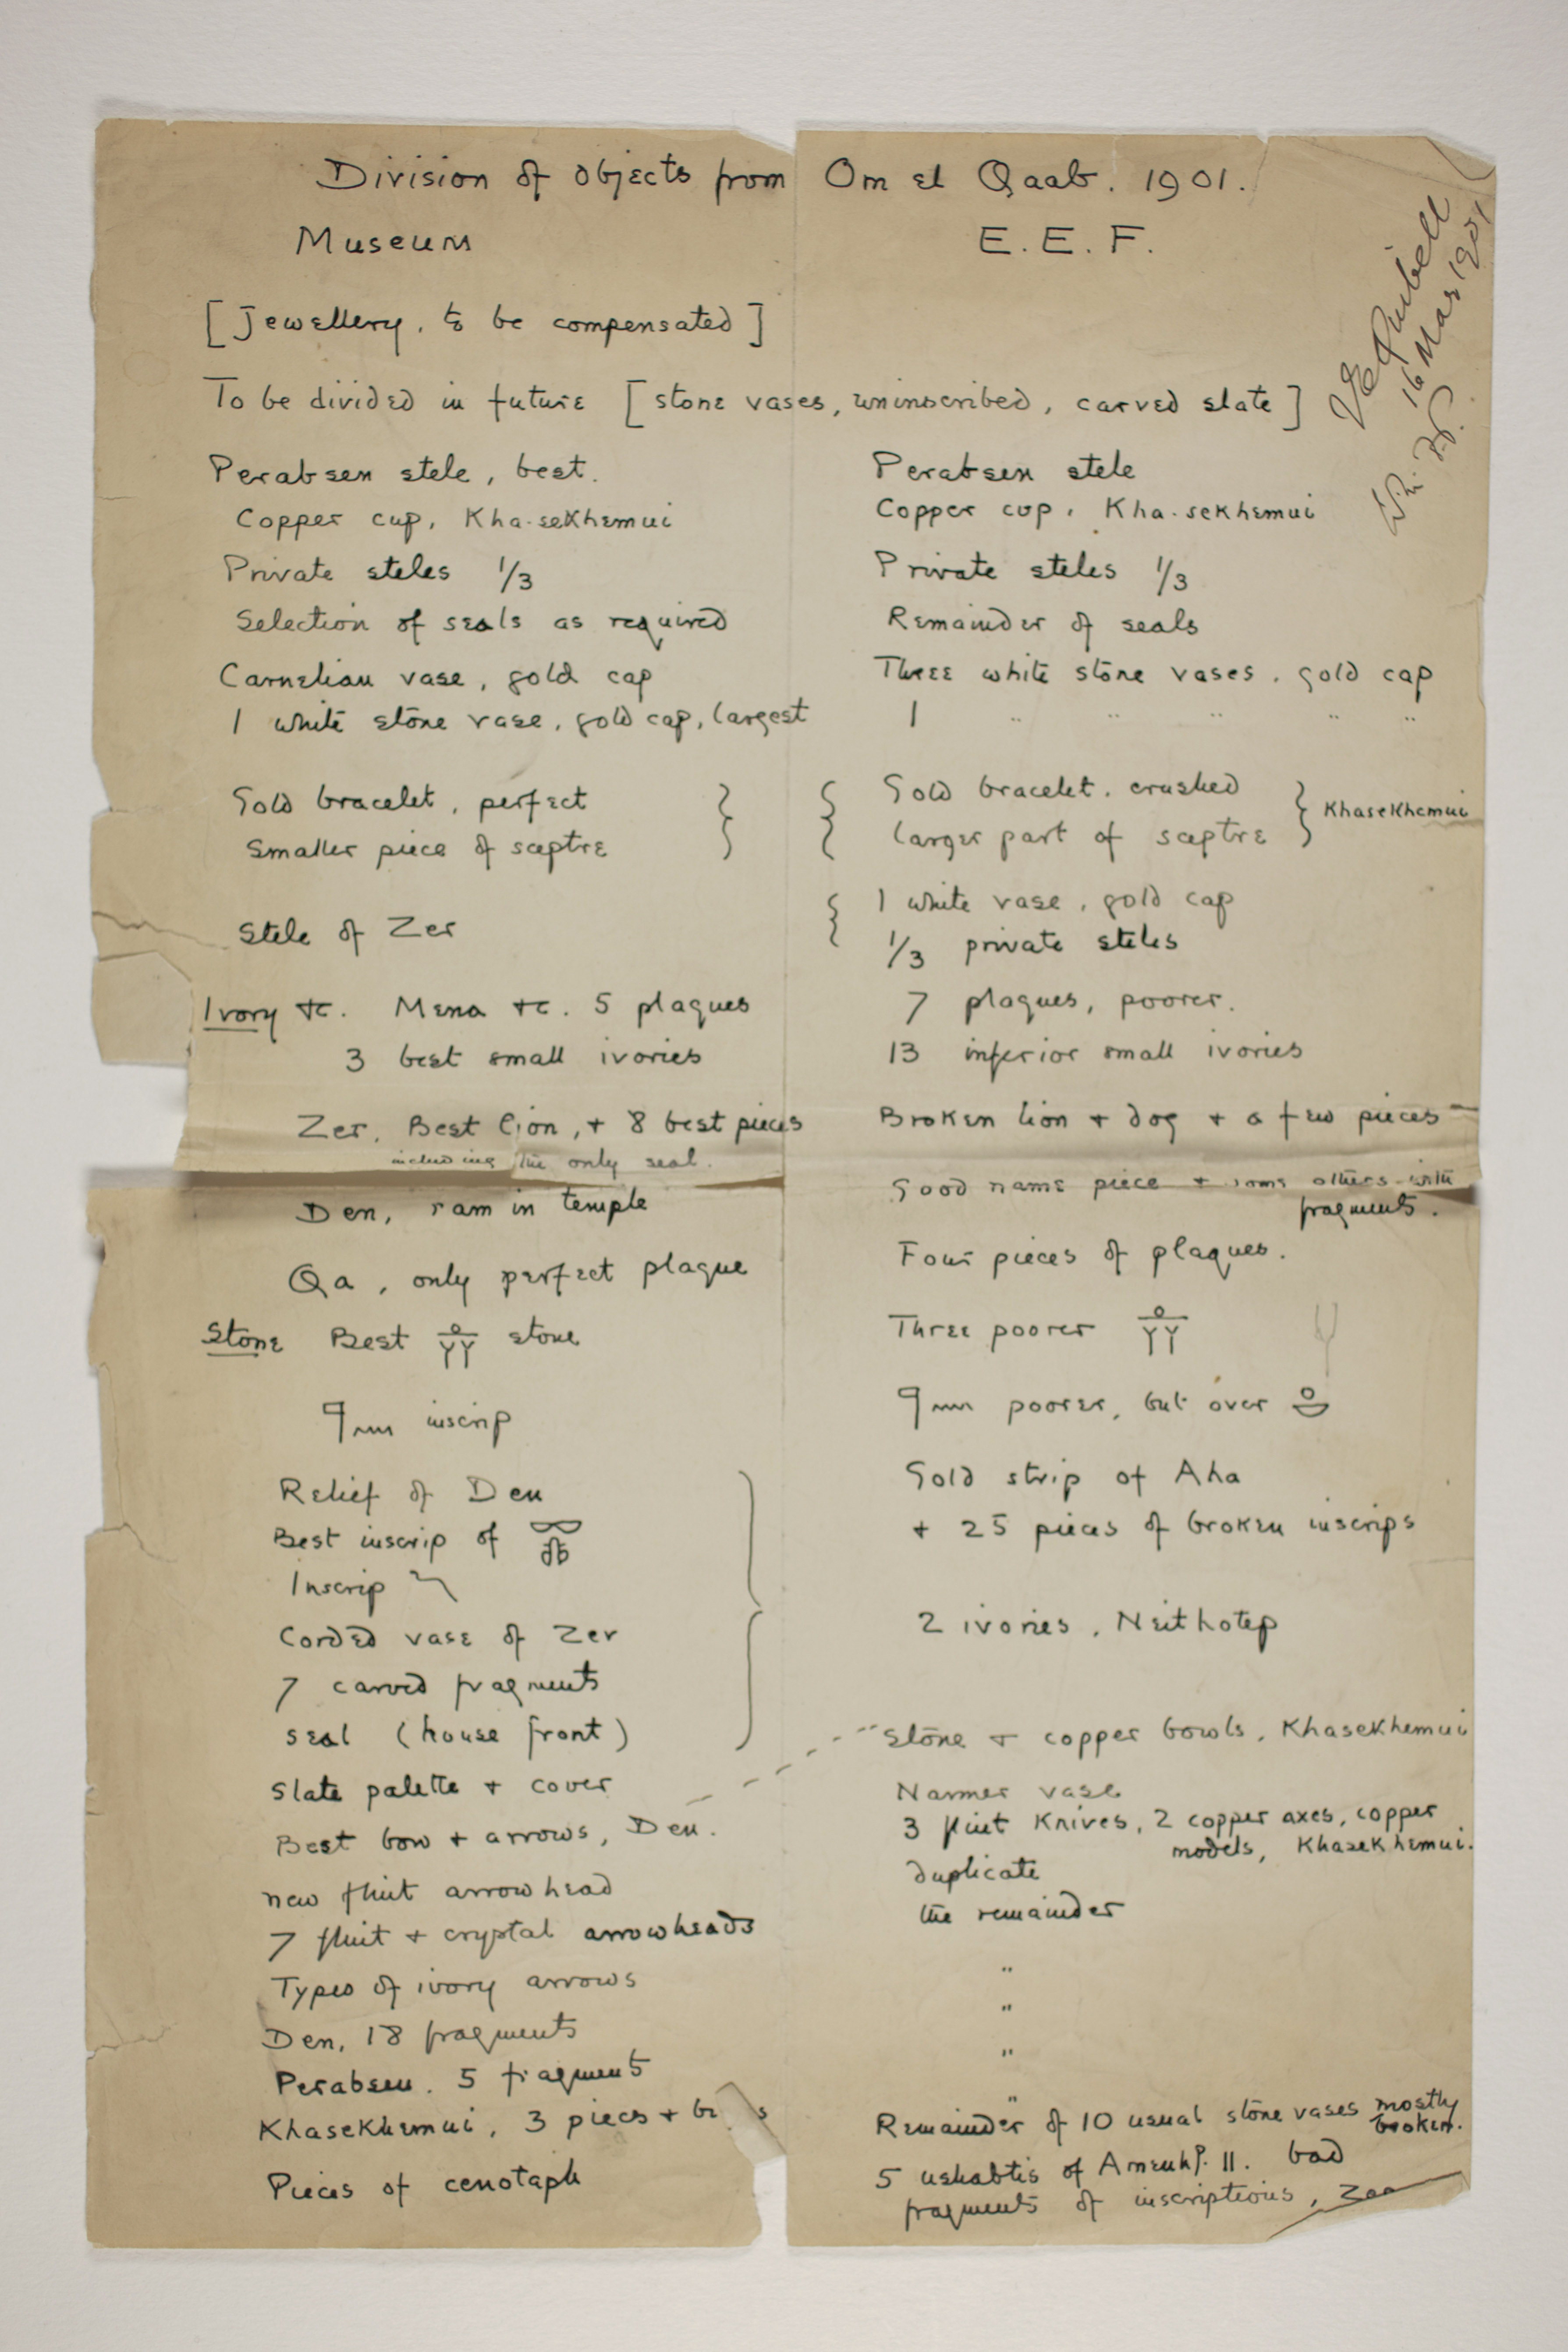 Division of objects from Om el Qaab. 1901.
Museum
E. E. F.
J E Quibell
16 Mar 1901
[Jewellery, to be compensated]
To be divided in future [stone vases, uninscribed, carved slate]
Perabsen stele, best.
Copper cup, Kha-sekhemui
Private steles 1/3
Selection of seals as required
Carnelian vase, gold cap
1 white stone vase, gold cap, largest
Gold bracelet, perfect
Smaller piece of sceptre
Stele of Zer
Ivory &c. Mena &c. 5 plaques
3 best small ivories
Zer, Best lion, + 8 best pieces
including the only seal.
Den, ram in temple
Qa, only perfect plague
Stone Best stone
inscrip
Relief of Den
Best inscrip of
Inscrip
Corded vase of Zer
7 carved fragments
seal (house front)
Slate palette + cover
Best bow + arrows, Den.
new flint arrowhead
7 flint + crystal arrowheads
Types of ivory arrows
Den, 18 fragments
Perabsen. 5 fragments
Khasekhemui, 3 pieces +
Pieces of cenotaph
Perabsen stele
Copper cup, Kha-sekhemui
Private steles 1/3
Remainder of seals
Three white stone vases, gold cap
1 " " " " "
Gold bracelet, crushed
larger part of sceptre
Khasekhemui
1 white vase, gold cap
1/3 private steles
7 plaques, poorer.
13 inferior small ivories
Broken lion + dog + a few pieces
Good name piece + some others with
fragments.
Four pieces of plaques.
Three poorer
poorer, but over
Gold strip of Aha
+ 25 pieces of broken inscrips
2 ivories, Neithotep
Stone + copper bowls, Khasekhemui
Narmer vase
3 flint Knives, 2 copper axes, copper
models, Khasekhemui.
duplicate
the remainder
"
"
"
"
Remainder of 10 usual stone vases mostly
broken.
5 ushabtis of Amenhp. II. bad
fragments of inscriptions,